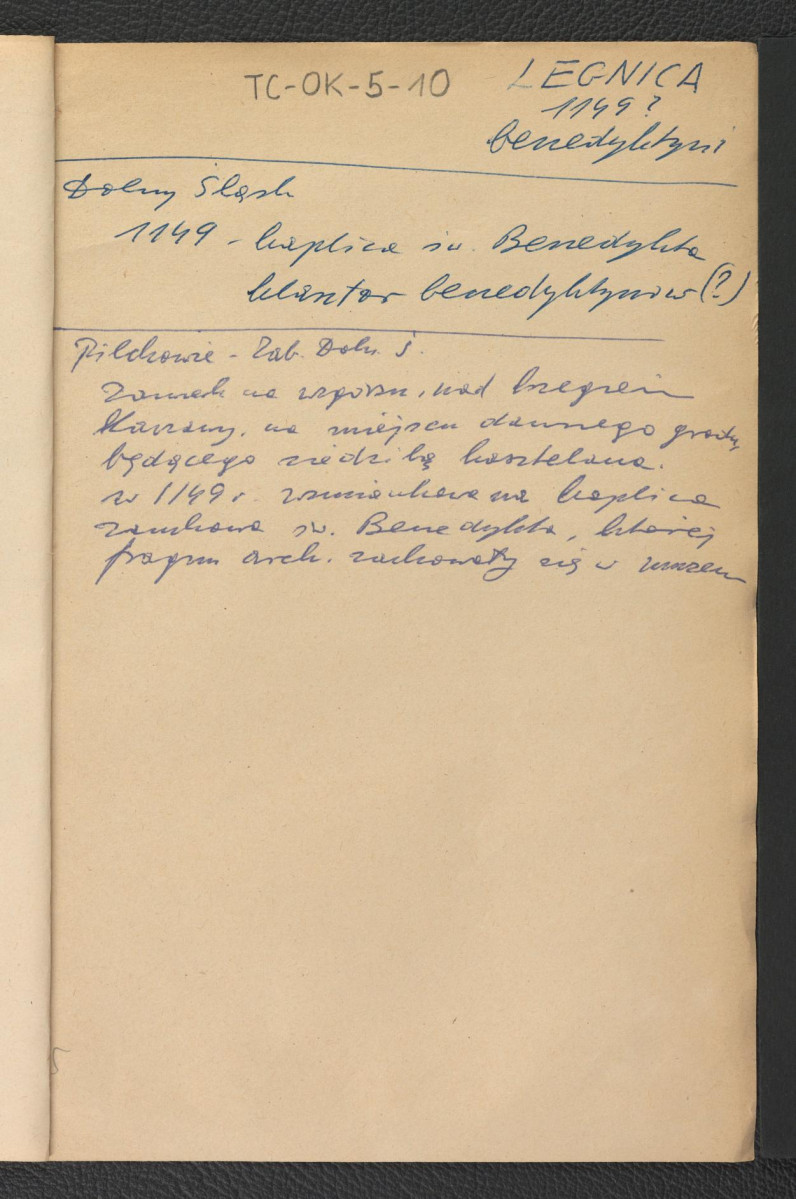 TC-OK-5-10
LEGNICA
1149?
benedyktyni
Dolny Śląsk
1149 - kaplica św. Benedykta
klasztor benedyktynów (?)
Pilchowie - Zab. Doln. Ś.
zamek na wzgórzu, nad brzegiem
Kaczawy, na miejscu dawnego grodu,
będącego siedzibą kasztelana.
w 1149 r. wzmiankowana kaplica
zamkowa św. Benedykta, której
fragm arch. zachowały się w muzeum